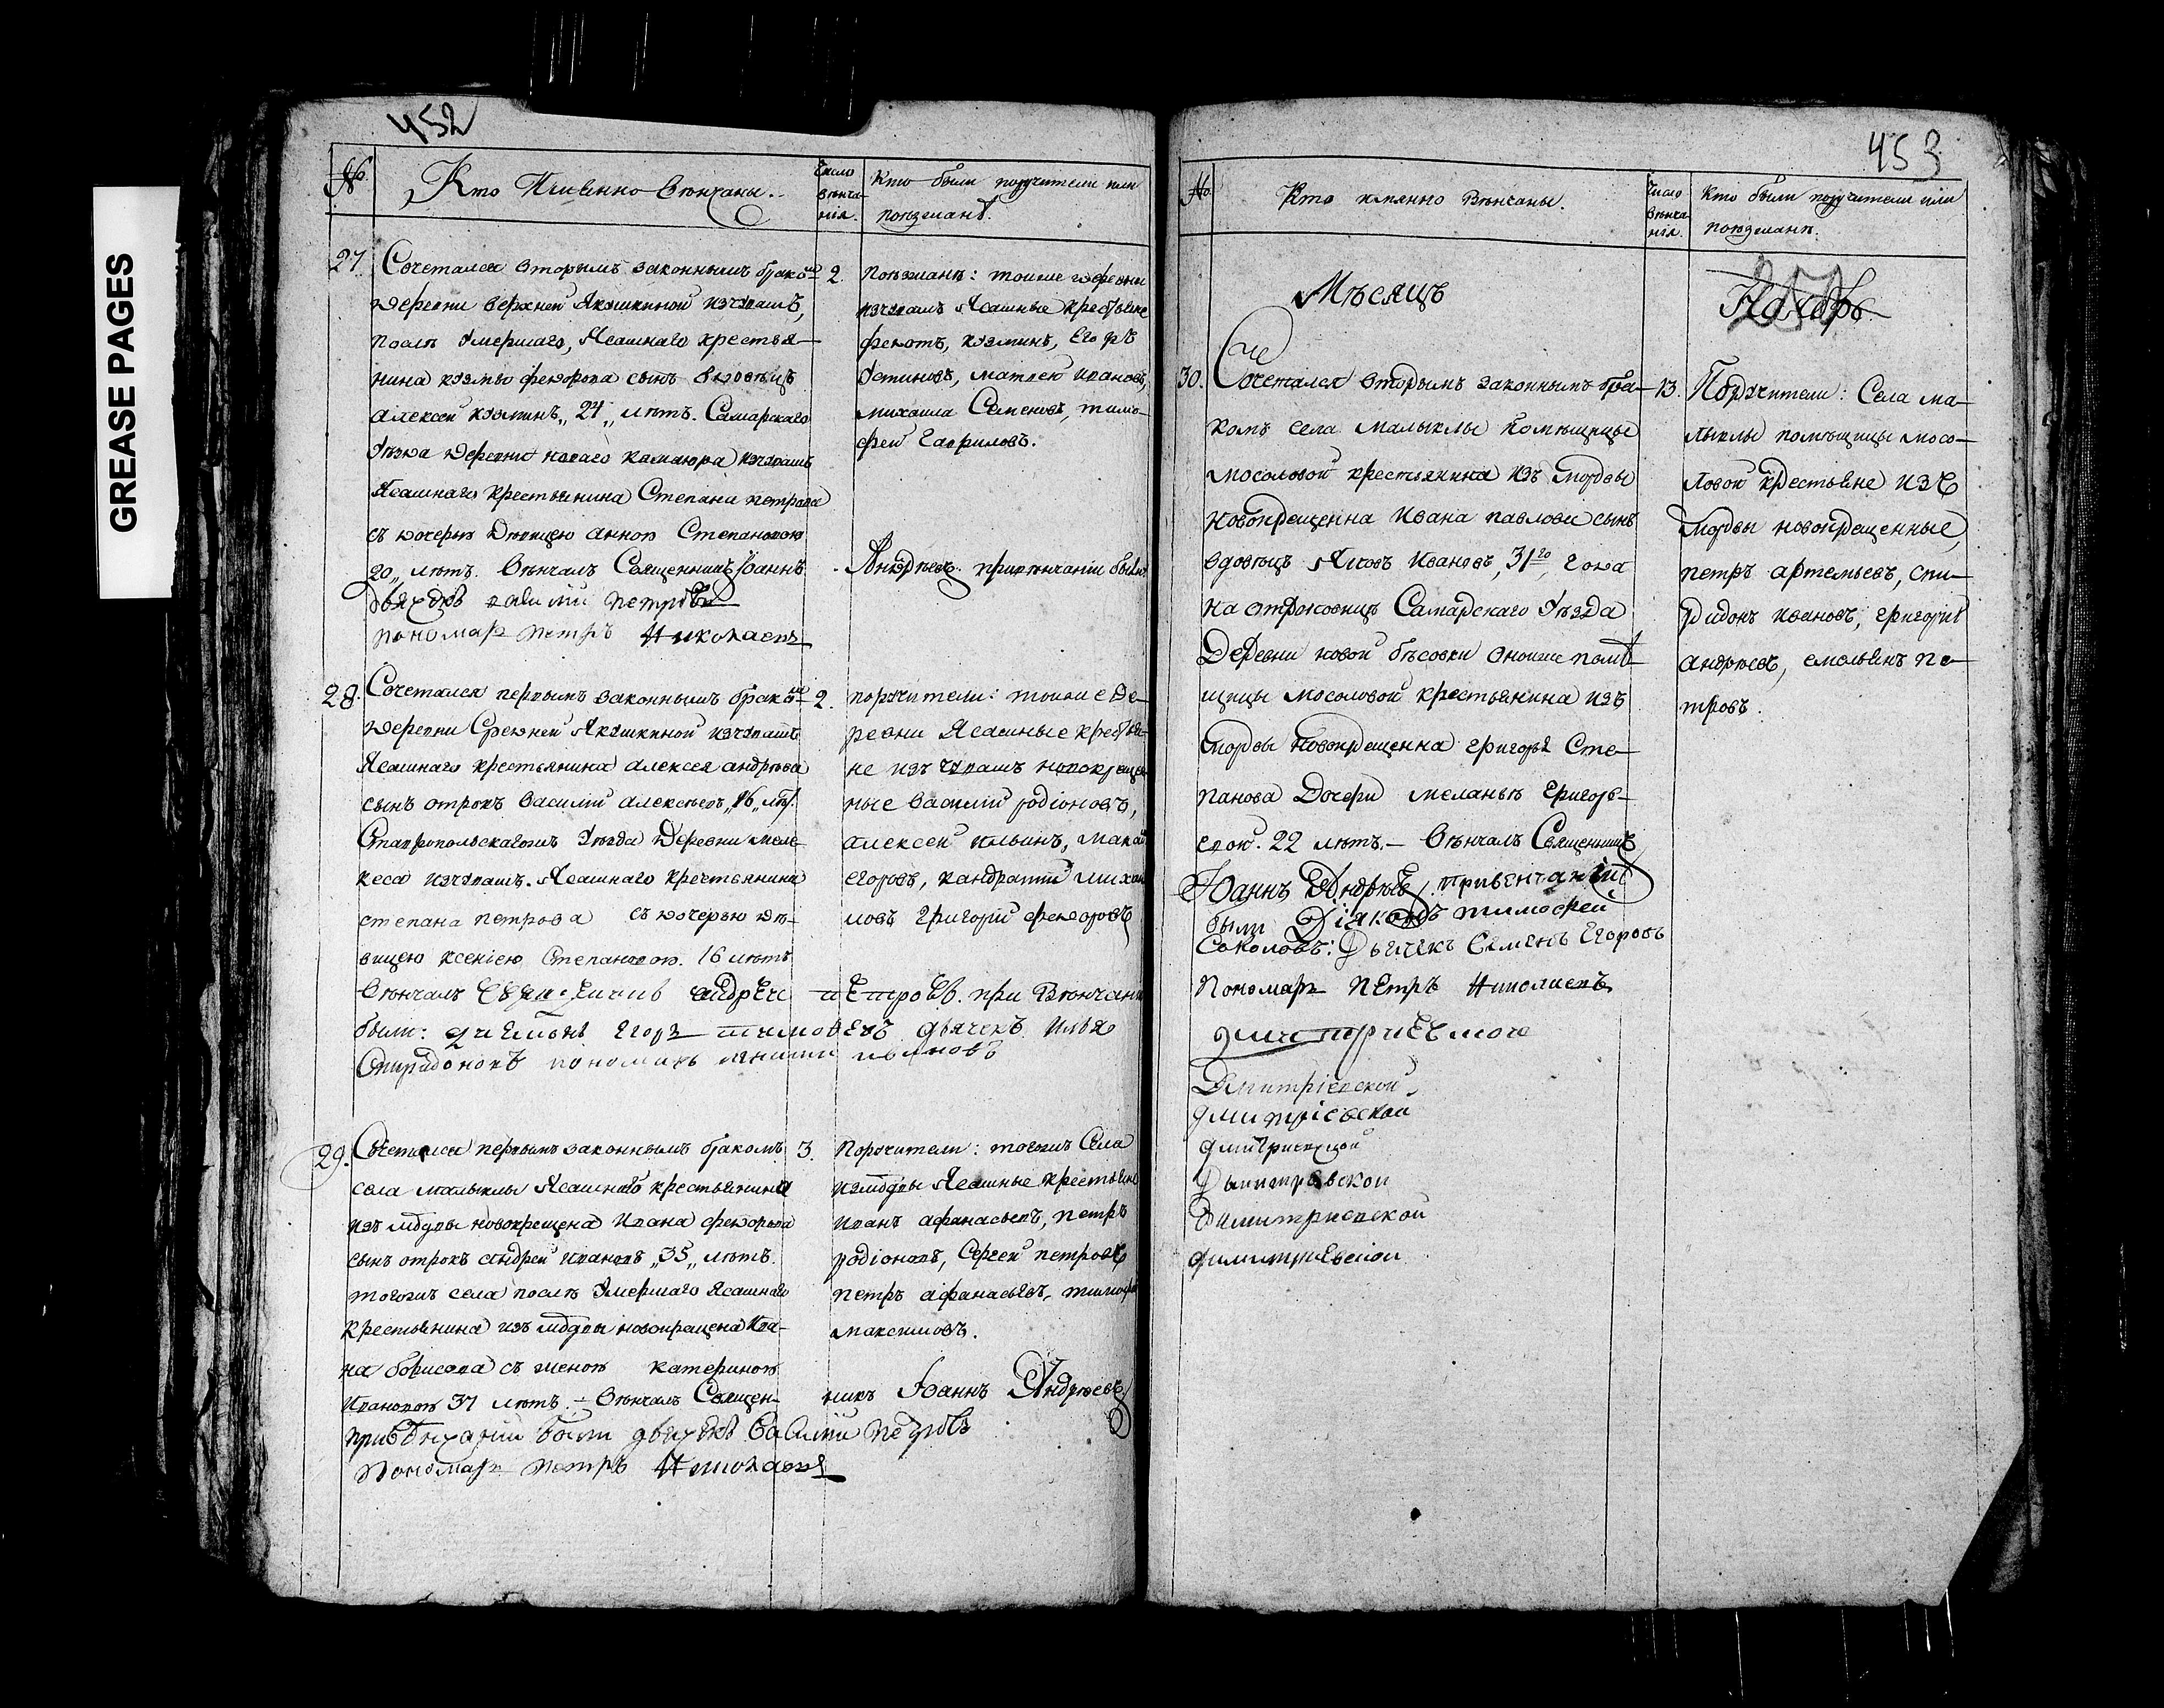 GREASE PAGES
452
№
Кто Имянно Вѣнчаны.
Число Вѣнча-
нія.
Кто были поручители или
поѣзжанѣ.
27.
Сочетался вторымъ законнымъ бракомъ
деревни верхней Якушкиной изчувашъ,
послѣ умершаго, Ясашнаго крестья-
нина кузмы федорова сынъ вдовецъ
алексей кузминъ „24„ лѣтъ. Самарскаго
уѣзда деревни новаго камаюра изчувашъ
Ясашнаго крестьянина Степана петрова
съ дочерью Дѣвицею анною Степановою
20„ лѣтъ. Вѣнчалъ Священникъ Іоаннъ
Андрѣевъ. привѣнчаніи были
дьячекъ василий петровъ
пономарь петръ Николаевъ
2.
поѣзжанѣ: тоижъ деревни
изчувашъ Ясашные крестьяне
федотъ, кузминъ, Егоръ
Устиновъ, матвей ивановъ,
михаила Семеновъ, тимо-
фей Гавриловъ.
28.
Сочетался первымъ законнымъ бракомъ
деревни Средней Якушкиной изчувашъ
Ясашнаго крестьянина алексея андрѣева
сынъ отрокъ василий алексѣевъ, 16„ лѣтъ.
Ставропольскагожъ уѣзда Деревни меле-
кеса изчувашъ. Ясашнаго крестьянина
степана петрова съ дочерью дѣ-
вицею ксеніею Степановою. 16 лѣтъ
Вѣнчалъ андрей петровъ. при Вѣнчани
были: Егоръ тимовеевъ дьячекъ илья
Спиридоновъ пономарь
2.
поручители: тоиже Де-
ревни Ясашные крестья-
не изъ чувашъ новокреще-
ные василий родіоновъ,
алексей ильинъ, макаръ
егоровъ, кандратий михаи-
ловъ Григорій федоровъ
29.
Сочетался первымъ законнымъ бракомъ
села малыклы Ясашнаго крестьянина
изъ мордвы новокрещена ивана федорова
сынъ отрокъ андрей ивановъ „35„ лѣтъ.
тогожъ села послѣ умершаго Ясашнаго
крестьянина изъ мордвы новокрещена Ива-
на борисова съ женою катериною
ивановою 37 лѣтъ. – Вѣнчалъ Священ-
никъ Іоаннъ Андрѣевъ
привѣнчании были дьячекъ василий петровъ
пономарь петръ Николаевъ
3.
Поручители: тогожъ Села
измордвы Ясашные крестьяне
иванъ афанасьевъ, петръ
родіоновъ, Сергей петровъ
петръ афанасьевъ, тимофей
максимовъ.
453
№
Кто имянно Вѣнчаны.
Число Вѣнча
нія.
Кто были поручители или
поѣзжанѣ.
Мѣсяцъ
Ноябрь
Со
30.
Сочетался вторымъ законнымъ бра-
комъ села малыклы помѣщицы
мосоловой крестьянина изъ мордвы
новокрещенна Ивана павлова сынъ
вдовецъ Яковъ Ивановъ, 31го, года
на отроковицѣ Самарскаго Уѣзда
Деревни новой бѣсовки оноиже помѣ-
щицы мосоловой крестьянина изъ
мордвы новокрещенна григорья Сте-
панова Дочери меланьѣ григорь-
евой. 22 лѣтъ. – Вѣнчалъ Священникъ
Іоаннъ Андрѣевъ. привенчаніи
были Діаконъ тимофей
Соколовъ: дьячекъ Семенъ Егоровъ
Пономарь петръ Николаевъ
13.
Поручители: Села ма-
лыклы помѣщицы мосо-
ловой крестьяне изъ
мордвы новокрещенные,
петръ артемьевъ, спи-
ридонъ ивановъ, григорій
андрѣевъ, емельянъ пе-
тровъ.
Дмитріевской
дмитріевской
дмитриевской
Дмитриевской
Димитриевской
димитриевской